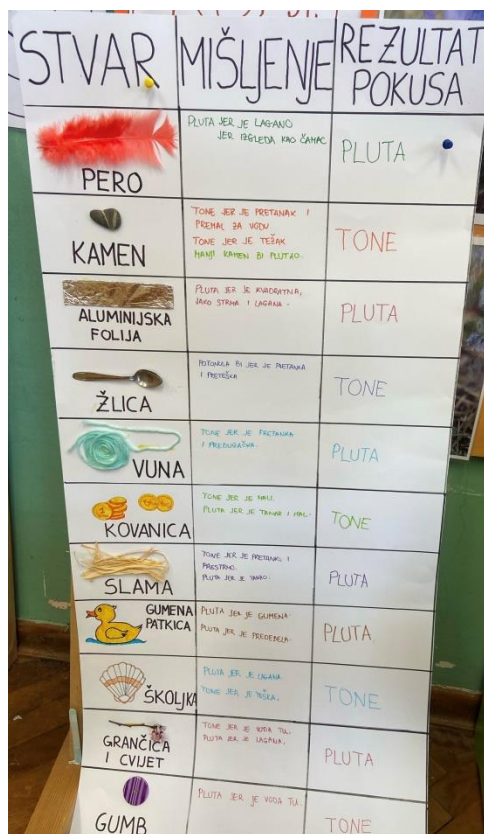 STVAR
MIŠLJENJE
REZULTAT
POKUSA
PERO
PLUTA JER JE LAGANO
JER IZGLEDA KAO ČAMAC
PLUTA
KAMEN
TONE JER JE PRETANAK I
PREMAL ZA VODU
TONE JER JE TEŽAK
MANJI KAMEN BI PLUTAO.
TONE
ALUMINIJSKA
FOLIJA
PLUTA JER JE KVADRATNA,
JAKO STRMA I LAGANA.
PLUTA
ŽLICA
POTONULA BI JER JE PRETANKA
I PRETEŠKA
TONE
VUNA
TONE JER JE PRETANKA
I PREDUGAČKA.
PLUTA
KOVANICA
TONE JER JE MALI.
PLUTA JER JE TANAK I MAL.
TONE
SLAMA
TONE JER JE PRETANKA I
PLUTA JER JE
PLUTA
GUMENA
PATKICA
PLUTA JER JE GUMENA.
PLUTA JER JE PREDEBELA.
PLUTA
ŠKOLJKA
PLUTA JER JE LAGANA
TONE JER JE TEŠKA.
TONE
GRANČICA
I CVIJET
TONE JER JE VODA TU.
PLUTA JER JE LAGANA.
PLUTA
GUMB
PLUTA JER JE VODA TU.
TONE